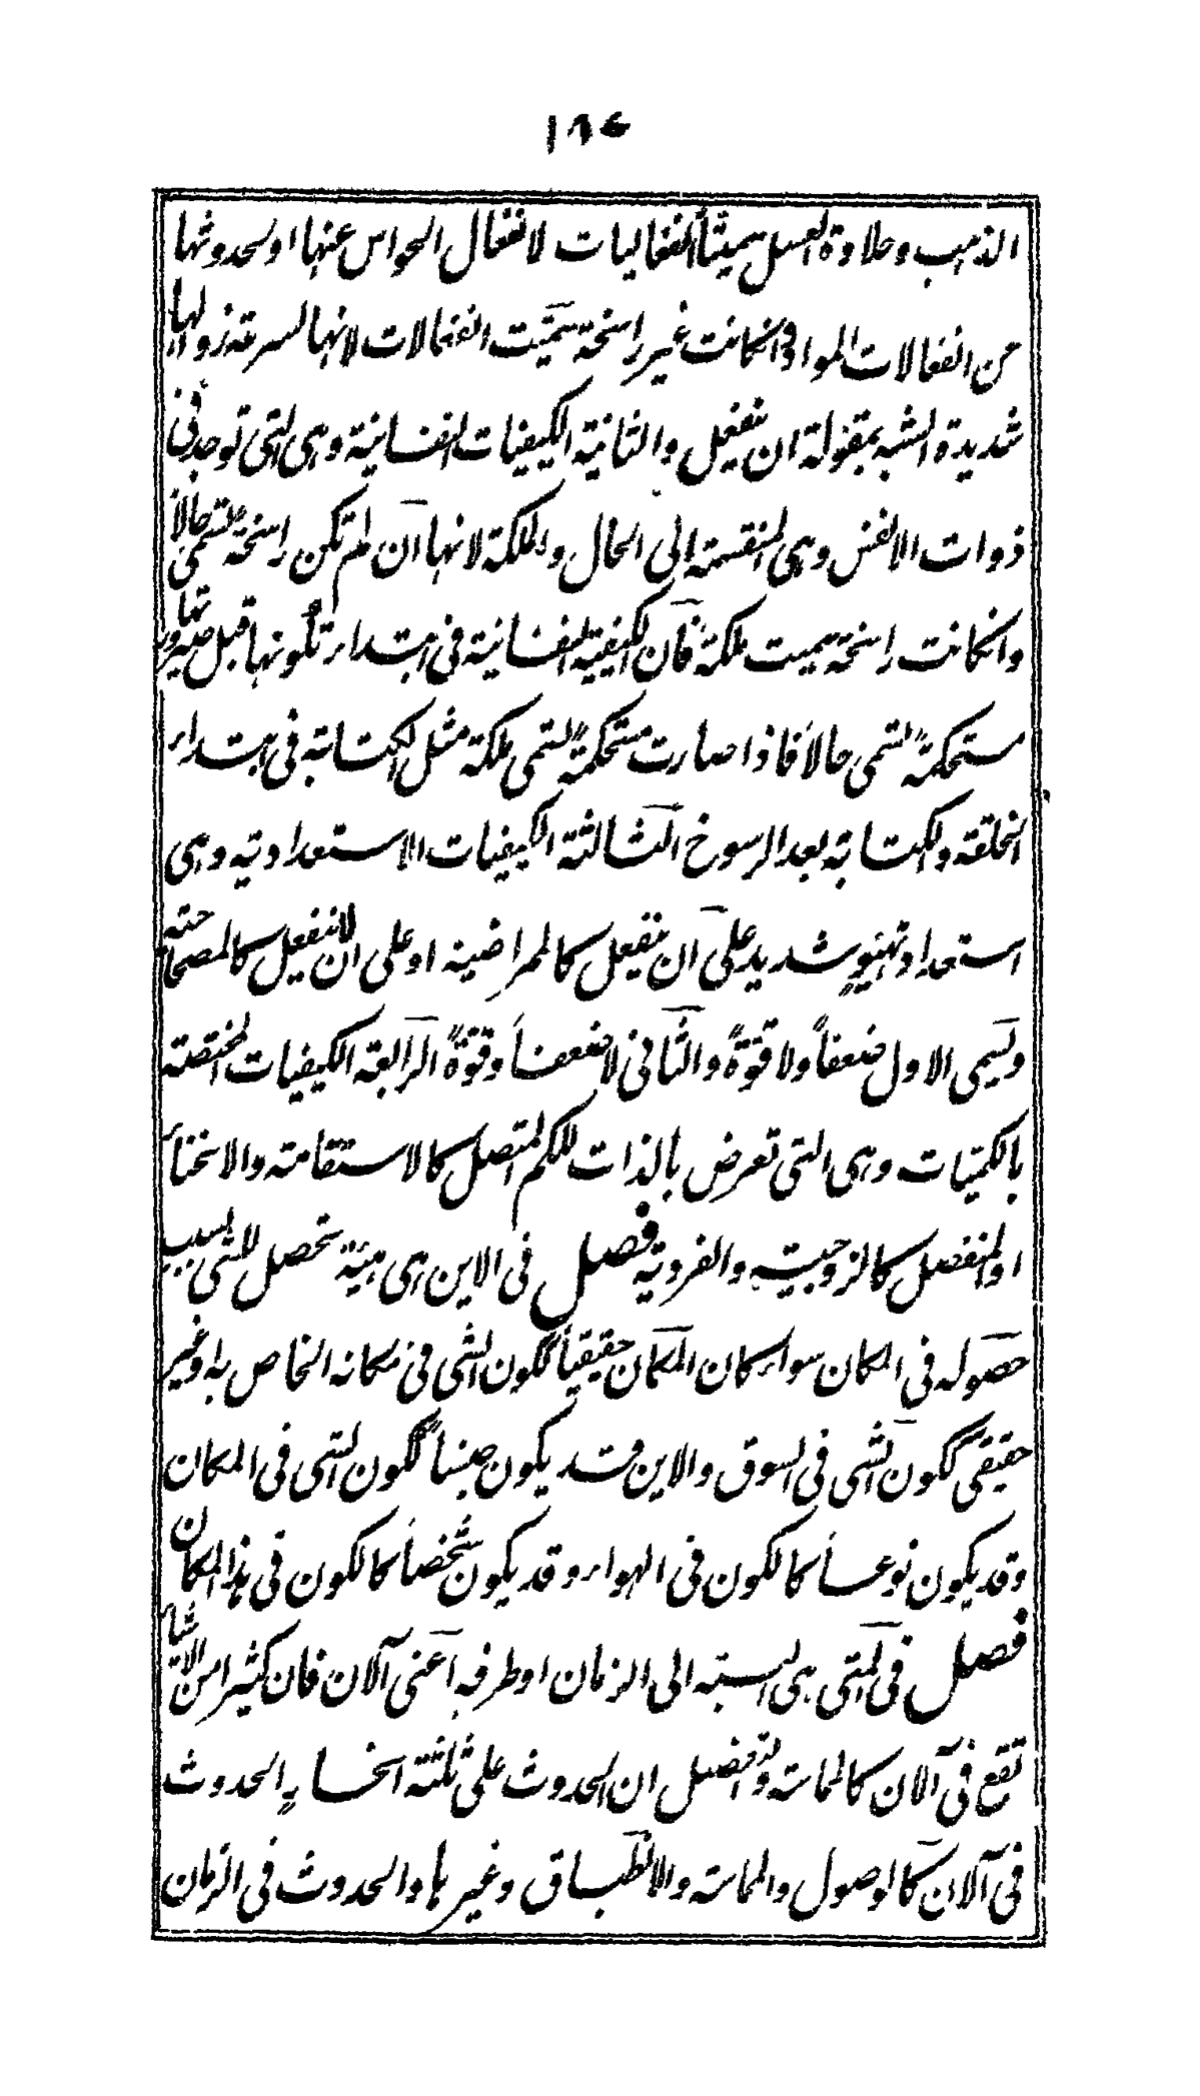 ١٨٤
الذهب وحلاوة العسل سميت انفعاليات لانفعال الحواس عنها او لحدوثها
من انفعالات المواد وانكانت غير راسخة سميت انفعالات لانها لسرعة زوالها
شديدة الشبه بمقولة ان ينفعل والثانية الكيفيات النفسانية وهى التى توجد فى
ذوات الانفس وهى المنقسمة الى الحال والملكة لانها ان لم تكن راسخة تسمى حالاً
وانكانت راسخة سميت ملكة فان الكيفية النفسانية فى ابتداء تكونها قبل صيرورتها
مستحكمة تسمى حالاً فاذا صارت مستحكمة تسمى ملكة مثل الكتابة فى ابتداء
الخلقة والكتابة بعد الرسوخ الثالثة الكيفيات الاستعدادية وهى
استعداد وتهيؤ شديد على ان ينفعل كالممراضية او على ان لا ينفعل كالمصحاحية
ويسمى الاول ضعفاً ولا قوةً والثانى لا ضعفاً وقوةً الرابعة الكيفيات المختصة
بالكميات وهى التى تعرض بالذات للكم المتصل كالاستقامة والانحناء
او المنفصل كالزوجية والفردية فصل فى الاين هى هيئة تحصل للشئ بسبب
حصوله فى المكان سواء كان المكان حقيقياً ككون الشئ فى مكانه الخاص به او غير
حقيقى ككون الشئ فى السوق والاين قد يكون جنساً ككون الشئ فى المكان
وقد يكون نوعاً كالكون فى الهواء وقد يكون شخصاً كالكون فى هذا المكان
فصل فى المتى هى النسبة الى الزمان او طرفه اعنى الآن فان كثيرا من الاشياء
تقع فى الآن كالمماسة والتفصيل ان الحدوث على ثلثة انحاء الحدوث
فى الآن كالوصول والمماسة والانطباق وغيرها والحدوث فى الزمان